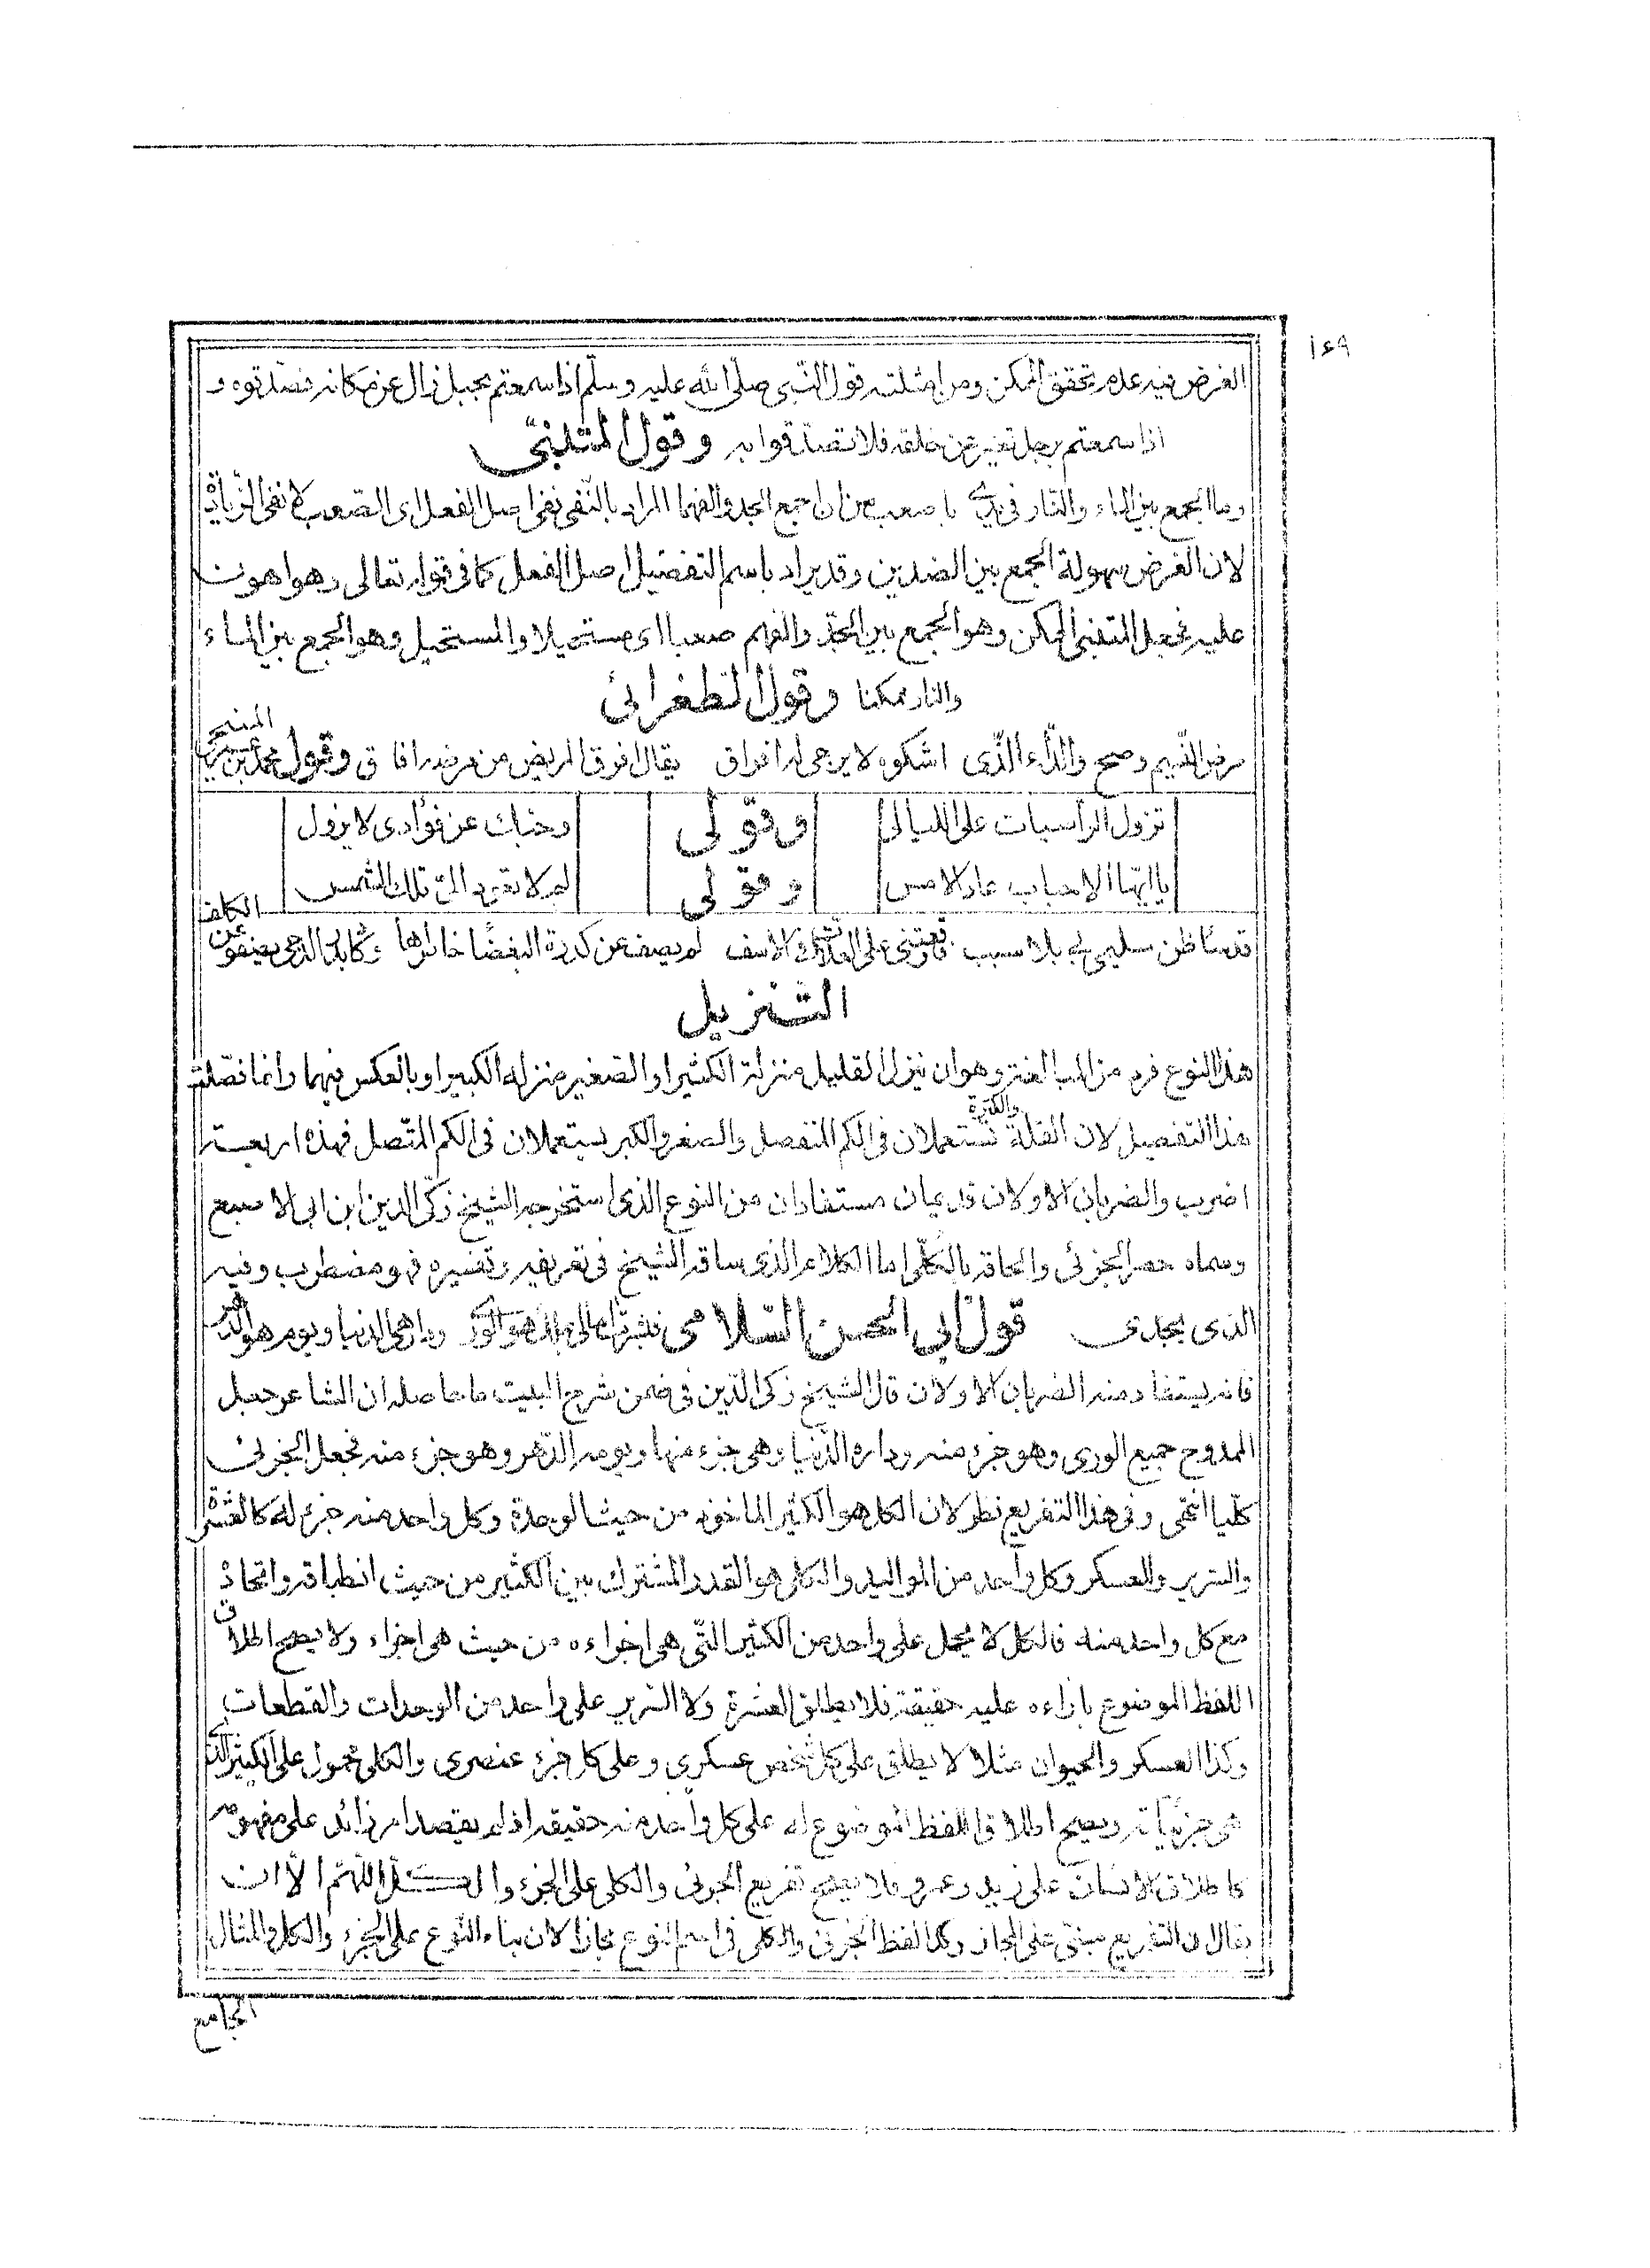 ١٤٩
الغرض منه عدم تحقق الممكن ومن امثلته قول النّبى صلّى الله عليه وسلّم اذا سمعتم بجبل زال عن مكانه فصدّقوه و
اذا سمعتم برجل تغير عن خلقه فلا تصدّقوا به وقول المتنبّى
وما الجمع بين الماء والنّار فى يدى باصعب من ان اجمع الجد والفهما المراد بالنّفى نفى اصل الفعل اى الصّعب لا نفى الزّيادة
لان الغرض سهولة الجمع بين الضدين وقد يراد باسم التفضيل اصل الفعل كما فى قوله تعالى وهو اهون
عليه فجعل المتنبى الممكن وهو الجمع بين الجدّ والفهم صعبا اى مستحيلا والمستحيل وهو الجمع بين الماء
والنار ممكنا وقول الطغرائى
مرض النّسيم وصح والدّاء الّذى اشكوه لا يرجى له افراق يقال افرق المريض من مرضه افاق وقول محمد بن
المنبجى
تزول الراسيات على الليالى وحبك عن فؤادى لا يزول
وقولى
يا ايّها الاحباب عاد الامس لم لا تعود الىّ تلك الشمس
وقولى
قد ساء ظن سليمى بى بلا سبب لم يصف عن كدرة البغضا خاطرها
الكلف
التّنزيل
هذا النوع فرد من المبالغة وهو ان ينزل القليل منزلة الكثير او الصّغير منزلة الكبير او بالعكس فيهما وانما فصّلت
هذا التفصيل لان القلة والكثرة تستعملان فى الكم المنفصل والصغر والكبر يستعملان فى الكم المتّصل فهذه اربعة
اضرب والضربان الاولان قديمان مستفادان من النوع الذى استخرجه الشيخ زكى الدين ابن ابى الاصبع
وسماه حصر الجزئى والحاقه بالكلّى اما الكلام الذى ساقه الشيخ فى تعريفه وتفسيره فهو مضطرب وفيه
الذى يجدى قول ابى الحسن السّلامى فبشرت امالى بملك هو الورى ودار هى الدنيا ويوم هو الدهر
فانه يستفاد منه الضربان الاولان قال الشيخ زكى الدّين فى ضمن شرح البيت ما حاصله ان الشاعر جعل
الممدوح جميع الورى وهو جزء منه وداره الدّنيا وهى جزء منها ويومه الدّهر وهو جزء منه فجعل الجزئى
كلّيا انتهى وفى هذا التفريع نظر لان الكل هو الكثير الماخوذ من حيث الوحدة وكل واحد منه جزء له كالعشرة
والسرير والعسكر وكل واحد من المواليد والكلى هو القدر المشترك بين الكثير من حيث انطباقه واتحاده
مع كل واحد منه فالكل لا يحمل على واحد من الكثير التّى هى اجزاءه من حيث هى اجزاء ولا يصح اطلاق
اللفظ الموضوع بازاءه عليه حقيقة فلا يطلق العشرة ولا السرير على واحد من الوحدات والقطعات
وكذا العسكر والحيوان مثلا لا يطلق على كل شخص عسكرى وعلى كل جزء عنصرى والكلى محمول على الكثير التى
هى جزئياته ويصح اطلاق اللفظ الموضوع له على كل واحد منه حقيقة اذا لم يقصد امر زائد على مفهومه
كاطلاق الانسان على زيد وعمرو فلا يصح تفريع الجزئى والكلى على الجزء والكل اللّهمّ الّا ان
يقال ان التفريع مبنىّ على المجاز وكذا لفظ الجزئى والكلى فى اسم النوع مجازا لان بناء النّوع على الجزء والكل والمثال
الجامع